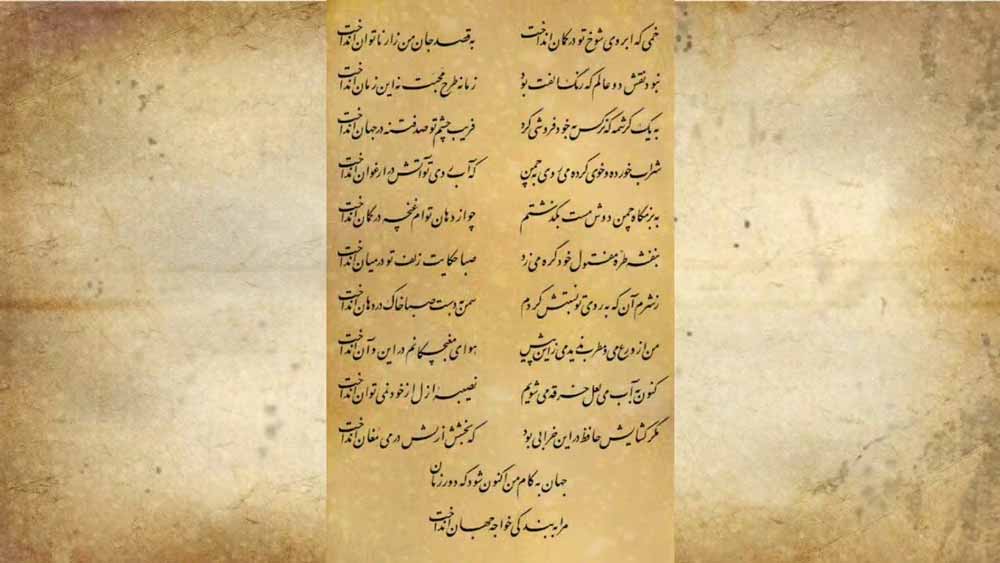 خمی که ابروی شوخ تو در کمان انداخت به قصد جان من زار ناتوان انداخت
نبود نقش دو عالم که رنگ الفت بود زمانه طرح محبت نه این زمان انداخت
به یک کرشمه که نرگس به خودفروشی کرد فریب چشم تو صد فتنه در جهان انداخت
شراب خورده و خوی کرده می روی به چمن که آب روی تو آتش در ارغوان انداخت
به بزمگاه چمن دوش مست بگذشتم چو از دهان توام غنچه در گمان انداخت
بنفشه طره مفتول خود گره می زد صبا حکایت زلف تو در میان انداخت
ز شرم آن که به روی تو نسبتش کردم سمن به دست صبا خاک در دهان انداخت
من از ورع می و مطرب ندیدمی زین پیش هوای مغبچگانم در این و آن انداخت
کنون به آب می لعل خرقه می شویم نصیبه ازل از خود نمی توان انداخت
مگر گشایش حافظ در این خرابی بود که بخشش ازلش در می مغان انداخت
جهان به کام من اکنون شود که دور زمان
مرا به بندگی خواجه جهان انداخت